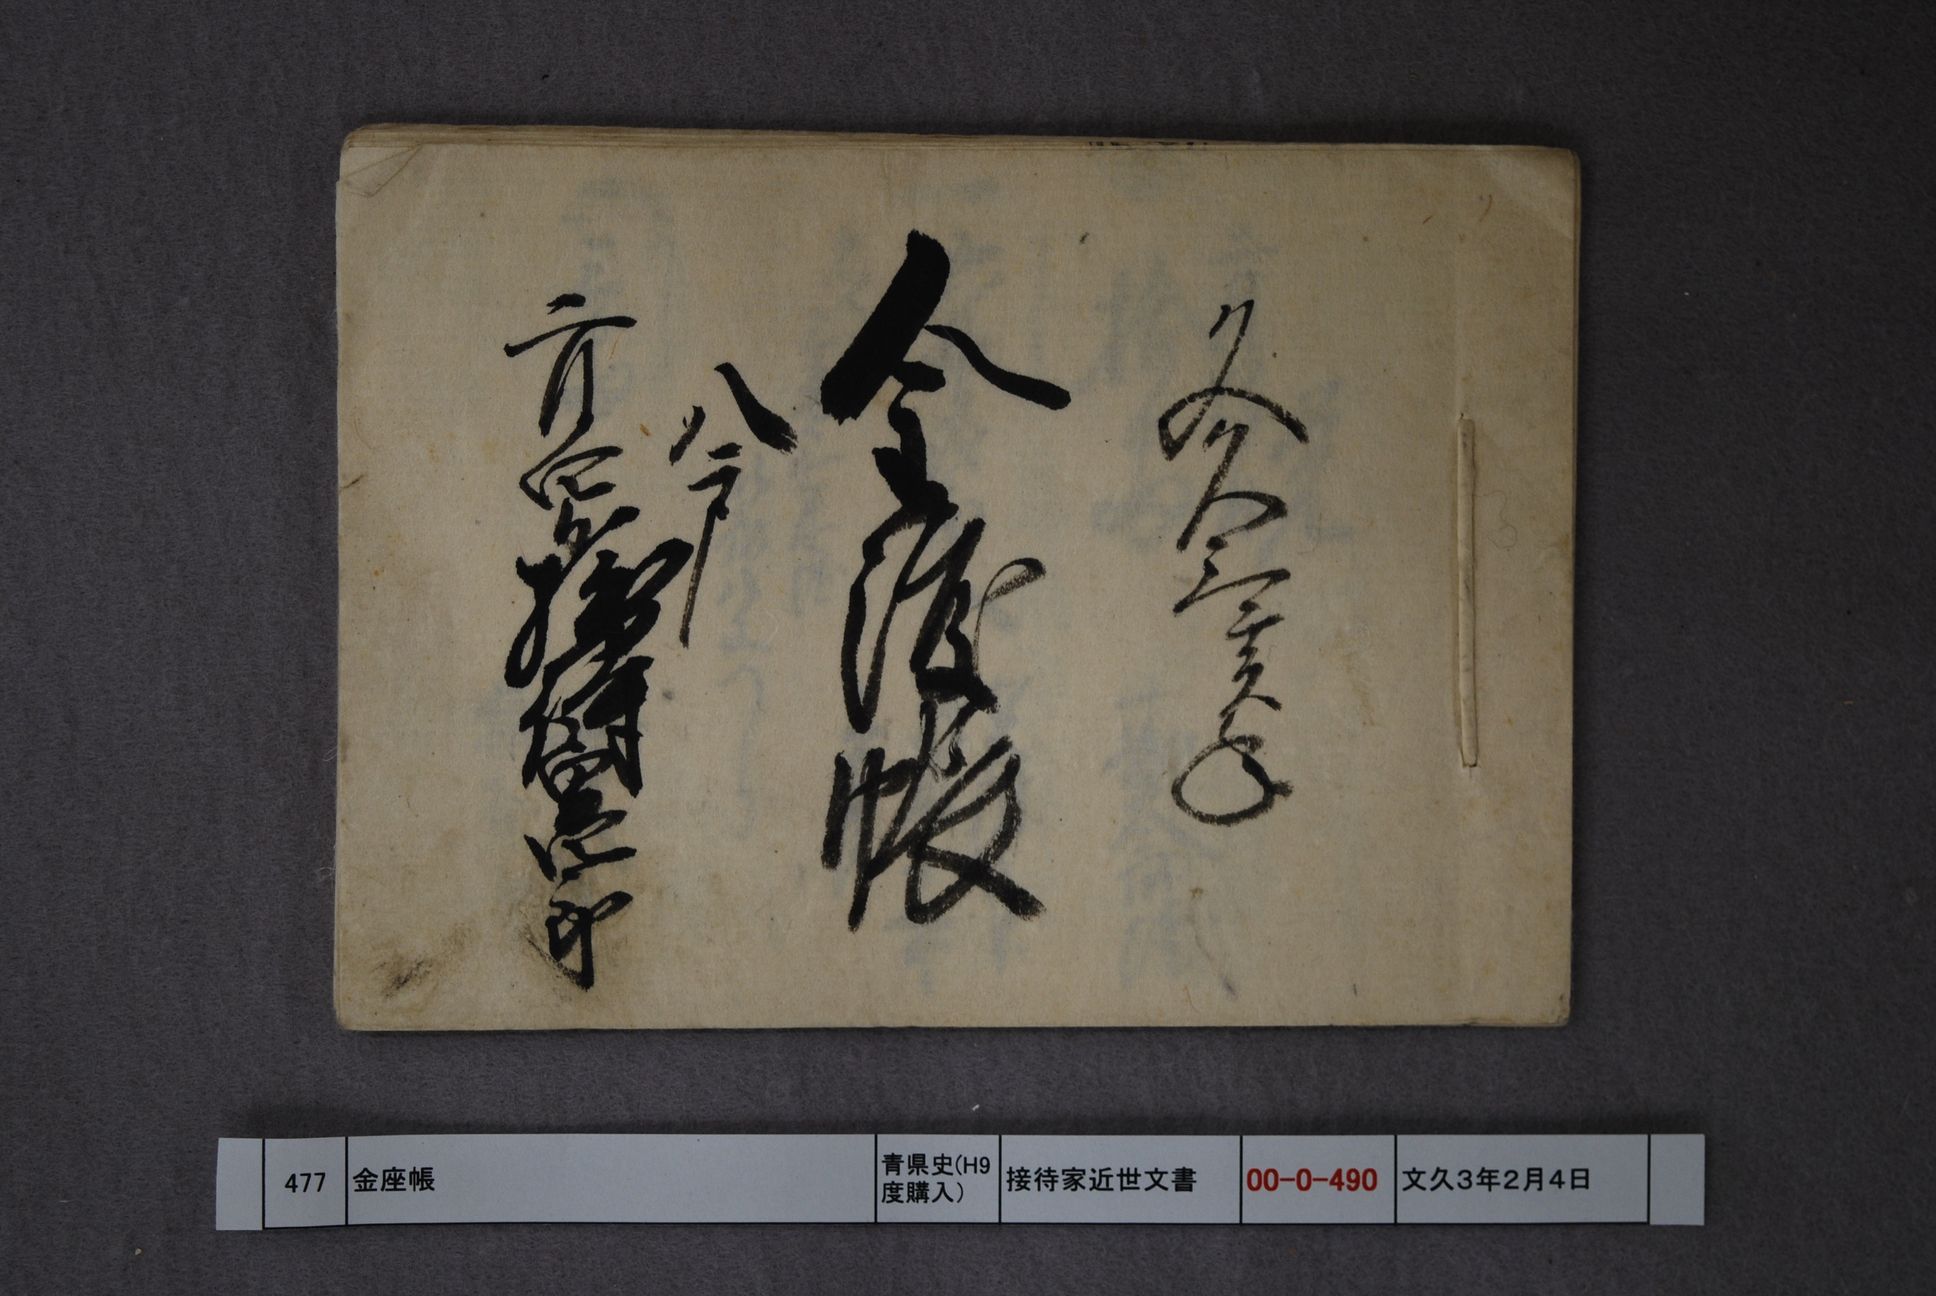 文久三亥年
金渡帳
八戸
二月四日
接待冨之丞
477
金座帳
青県史(H9
度購入)
接待家近世文書
00-0-490
文久3年2月4日